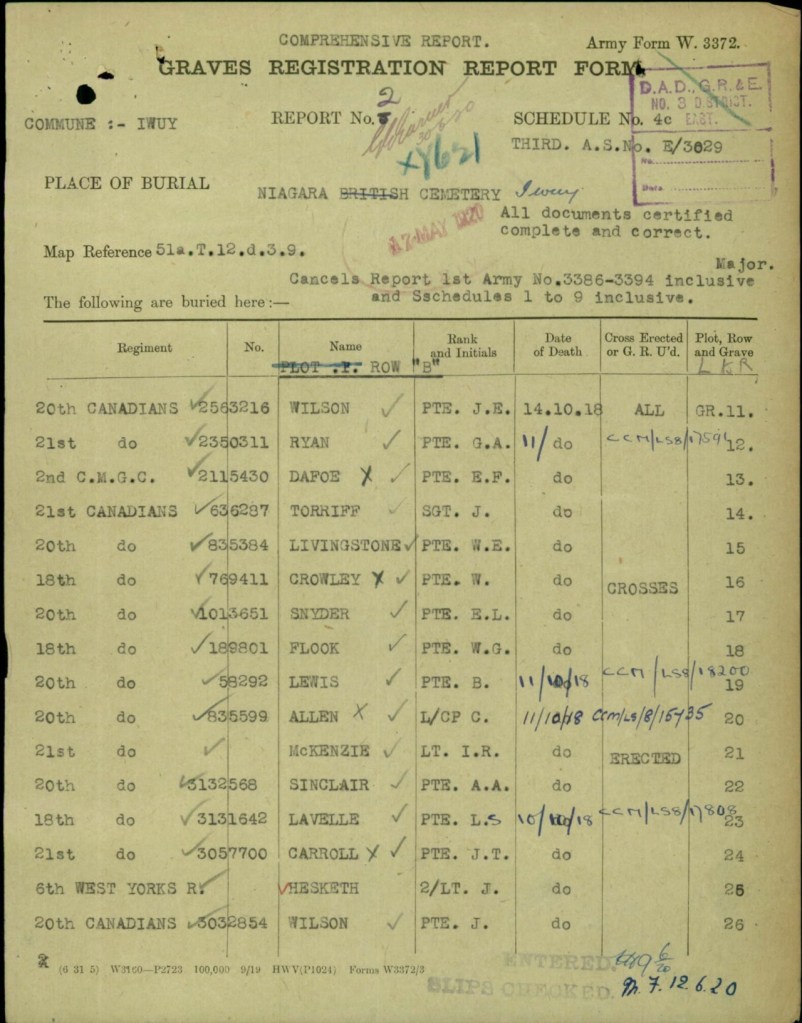 COMPREHENSIVE REPORT. Army Form W. 3372.
GRAVES REGISTRATION REPORT FORM
D.A.D., G.R. & E.
NO. 3 DISTRICT.
EAST.
COMMUNE :- IWUY REPORT No. 2 SCHEDULE No. 4c
30 6 20
+4621
THIRD. A.S.No. E/3029
No.
Date
PLACE OF BURIAL NIAGARA BRITISH CEMETERY Iwuy
17 MAY 1920
All documents certified
complete and correct.
Major.
Map Reference 51a.T.12.d.3.9.
Cancels Report 1st Army No.3386-3394 inclusive
and Sschedules 1 to 9 inclusive.
The following are buried here:—
Regiment No. Name Rank and Initials Date of Death Cross Erected or G. R. U'd. Plot, Row and Grave
PLOT .F. ROW "B" L K R
20th CANADIANS ✓2563216 WILSON ✓ PTE. J.E. 14.10.18 ALL GR.11.
21st do ✓2350311 RYAN ✓ PTE. G.A. 11/ do CCM/LSS/17591 12.
2nd C.M.G.C. ✓2115430 DAFOE X ✓ PTE. E.F. do 13.
21st CANADIANS ✓636287 TORRIFF ✓ SGT. J. do 14.
20th do ✓835384 LIVINGSTONE ✓ PTE. W.E. do 15
18th do ✓769411 CROWLEY X ✓ PTE. W. do CROSSES 16
20th do ✓1013651 SNYDER ✓ PTE. E.L. do 17
18th do ✓189801 FLOOK ✓ PTE. W.G. do 18
20th do ✓58292 LEWIS ✓ PTE. B. 11/10/18 CCM/LSS/18200 19
20th do ✓835599 ALLEN X ✓ L/CP C. 11/10/18 CCM/LS/8/15435 20
21st do ✓ McKENZIE ✓ LT. I.R. do ERECTED 21
20th do ✓3132568 SINCLAIR ✓ PTE. A.A. do 22
18th do ✓3131642 LAVELLE ✓ PTE. L.S 10/10/18 CCM/LSS/17808 23
21st do ✓3057700 CARROLL X ✓ PTE. J.T. do 24
6th WEST YORKS R. ✓ ✓HESKETH 2/LT. J. do 25
20th CANADIANS ✓3032854 WILSON ✓ PTE. J. do 26
2 (6 31 5) W3160—P2723 100,000 9/19 HWV(P1024) Forms W3372/3
ENTERED.
SLIPS CHECKED. M.F. 12.6.20